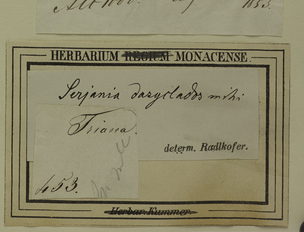 HERBARIUM REGIUM MONACENSE.
Serjania dasyclados mihi
Triana.
determ. Radlkofer.
453.
Herbar. Kummer.